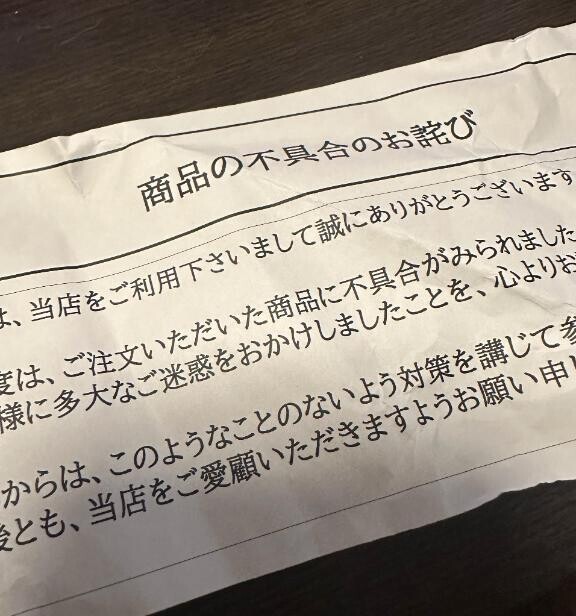 商品の不具合のお詫び
は、当店をご利用下さいまして誠にありがとうございます
度は、ご注文いただいた商品に不具合がみられました
様に多大なご迷惑をおかけしましたことを、心よりお
からは、このようなことのないよう対策を講じて参
後とも、当店をご愛顧いただきますようお願い申し